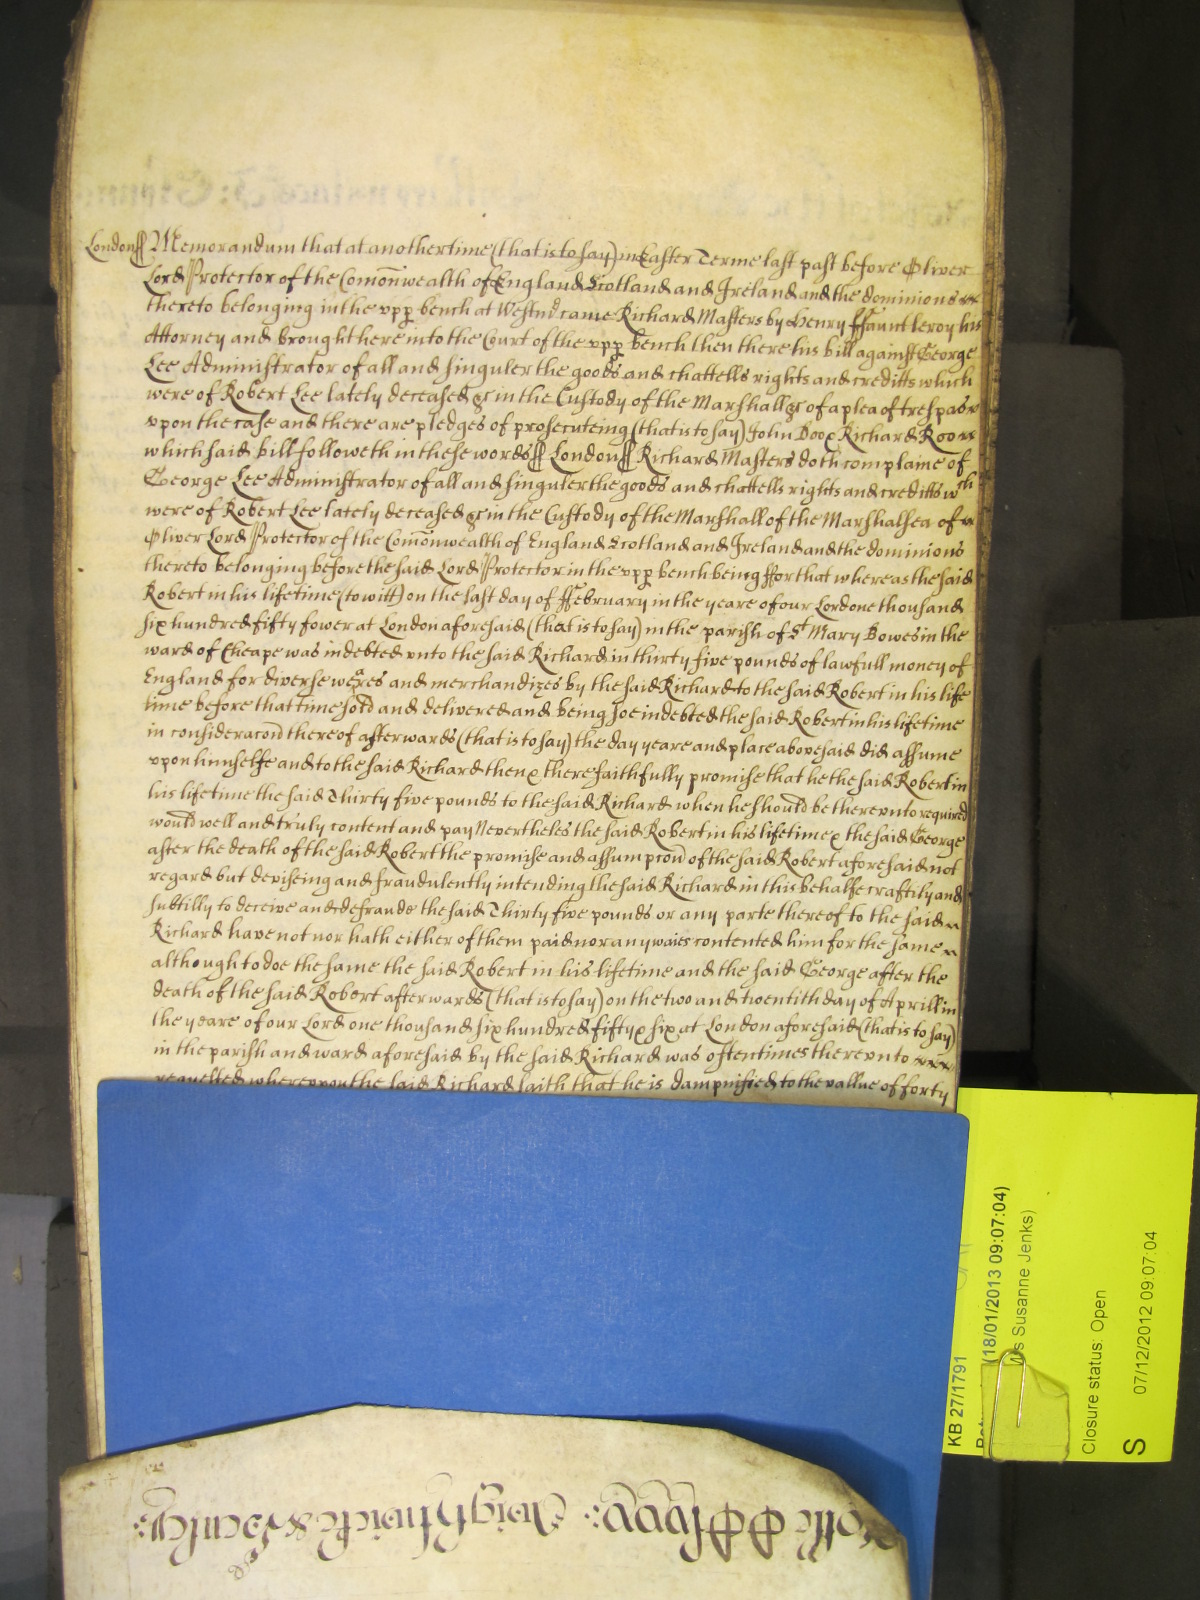 London ss Memorandum that at another time (that is to say) in Easter Terme last past before Oliver
Lord Protector of the Com̄onwealth of England Scotland and Ireland and the dominions
thereto belonging in the vpp bench at Westm̄ came Richard Masters by Henry ffauntleroy his
Attorney and brought here into the Court of the vpp bench then there his bill against George
Lee Administrator of all and singuler the goods and chattells rights and creditts which
were of Robert Lee lately deceased &c in the Custody of the Marshall &c of a plea of trespas
vpon the case and there are pledges of prosecuteing (that is to say) John Doo & Richard Roo
which said bill followeth in these words ss London ss Richard Masters doth complaine of
George Lee Administrator of all and singuler the goods and chattells rights and creditts wch
were of Robert Lee lately deceased &c in the Custody of the Marshall of the Marshalsea of
Oliver Lord Protector of the Com̄onwealth of England Scotland and Ireland and the dominions
thereto belonging before the said Lord Protector in the vpp bench being ffor that whereas the said
Robert in his lifetime (to witt) on the last day of ffebruary in the yeare of our Lord one thousand
six hundred fifty fower at London aforesaid (that is to say) in the parish of St Mary Bowes in the
ward of Cheape was indebted vnto the said Richard in thirty five pounds of lawfull money of
England for diverse wares and merchandizes by the said Richard to the said Robert in his life
time before that time sold and delivered and being soe indebted the said Robert in his lifetime
in consideracon̄ thereof afterwards (that is to say) the day yeare and place abovesaid did assume
vpon himselfe and to the said Richard then & there faithfully promise that he the said Robert in
his lifetime the said Thirty five pounds to the said Richard when he should be therevnto required
would well and truly content and pay Nevertheles the said Robert in his lifetime & the said George
after the death of the said Robert the promise and assumpcon̄ of the said Robert aforesaid not
regard but deviseing and fraudulently intending the said Richard in this behalfe craftily and
subtilly to deceive and defraude the said Thirty five pounds or any parte thereof to the said
Richard have not nor hath either of them paid nor any waies contented him for the same
although to doe the same the said Robert in his lifetime and the said George after the
death of the said Robert afterwards (that is to say) on the two and twentith day of Aprill in
the yeare of our Lord one thousand six hundred fifty & six at London aforesaid (that is to say)
in the parish and ward aforesaid by the said Richard was oftentimes therevnto
requested wherevpon the said Richard saith that he is dampnified to the vallue of forty
KB 27/1791
(18/01/2013 09:07:04)
Mrs Susanne Jenks)
Closure status: Open
S 07/12/2012 09:07:04